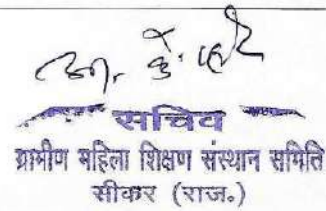 सचिव
ग्रामीण महिला शिक्षण संस्थान समिति
सीकर (राज.)